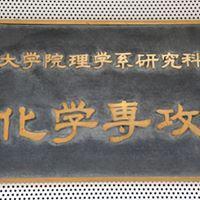 大学院理学系研究科
化学専攻